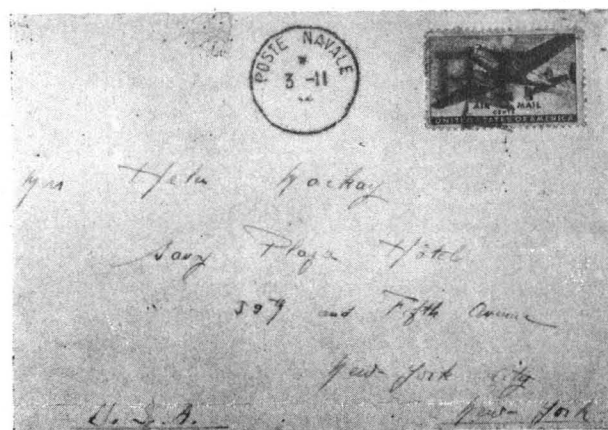 POSTE NAVALE
3-11
AIR MAIL
CENTS
UNITED STATES OF AMERICA
Mrs Helen Mackay
Savoy Plaza Hôtel
59th and Fifth Avenue
New-York city
U.S.A. New-York